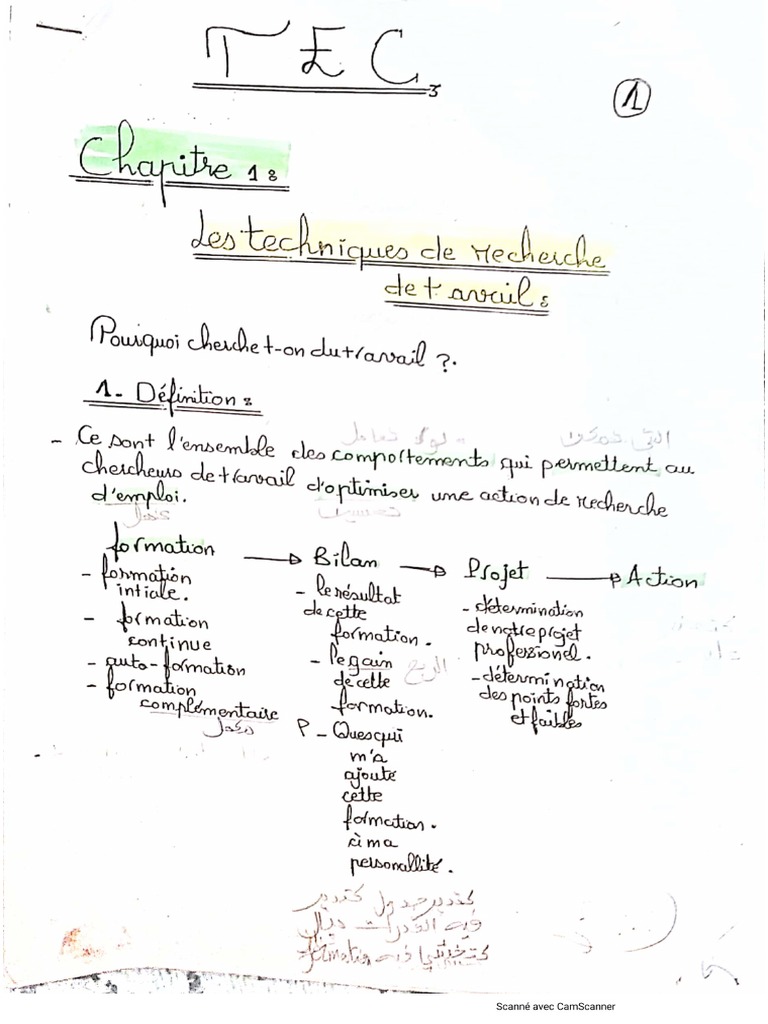 TEC
1
Chapitre 1:
Les techniques de recherche
de travail:
Pourquoi cherche t-on du travail ?.
1- Définition:
التي تمكن
- Ce sont l'ensemble des comportements qui permettent au
chercheurs de travail d'optimiser une action de recherche
d'emploi.
تحسين
formation → Bilan → Projet → Action
- formation
intiale.
- formation
continue
- auto-formation
- formation
complémentaire
مكمل
- le résultat
de cette
formation.
- le gain الربح
de cette
formation.
P - Quesqui
m'a
ajouté
cette
formation.
à ma
personallité.
- détermination
de notre projet
professionel.
- détermination
des points fortes
et faibles
كندير جدول كندير
فيه القدرات ديالي
formation
Scanné avec CamScanner